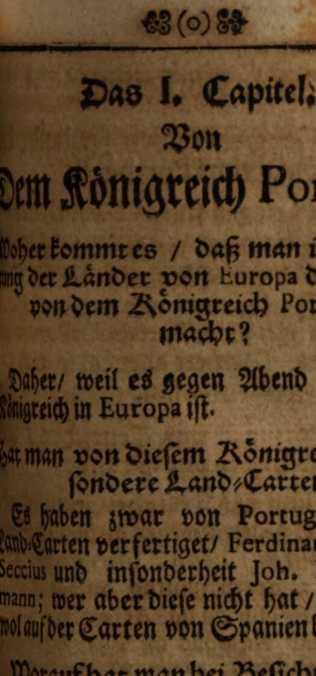 (o)
Das I. Capitel.
Von
Dem Königreich Por
Woher kommt es / daß man i
ung der Länder von Europa d
von dem Königreich Por
macht?
Daher/ weil es gegen Abend
Königreich in Europa ist.
Hat man von diesem Königre
sondere Land-Carten
Es haben zwar von Portug
Land-Carten verfertiget/ Ferdina
Seccius und insonderheit Joh.
mann; wer aber diese nicht hat /
wol auf der Carten von Spanien
Worauf hat man bei Besich